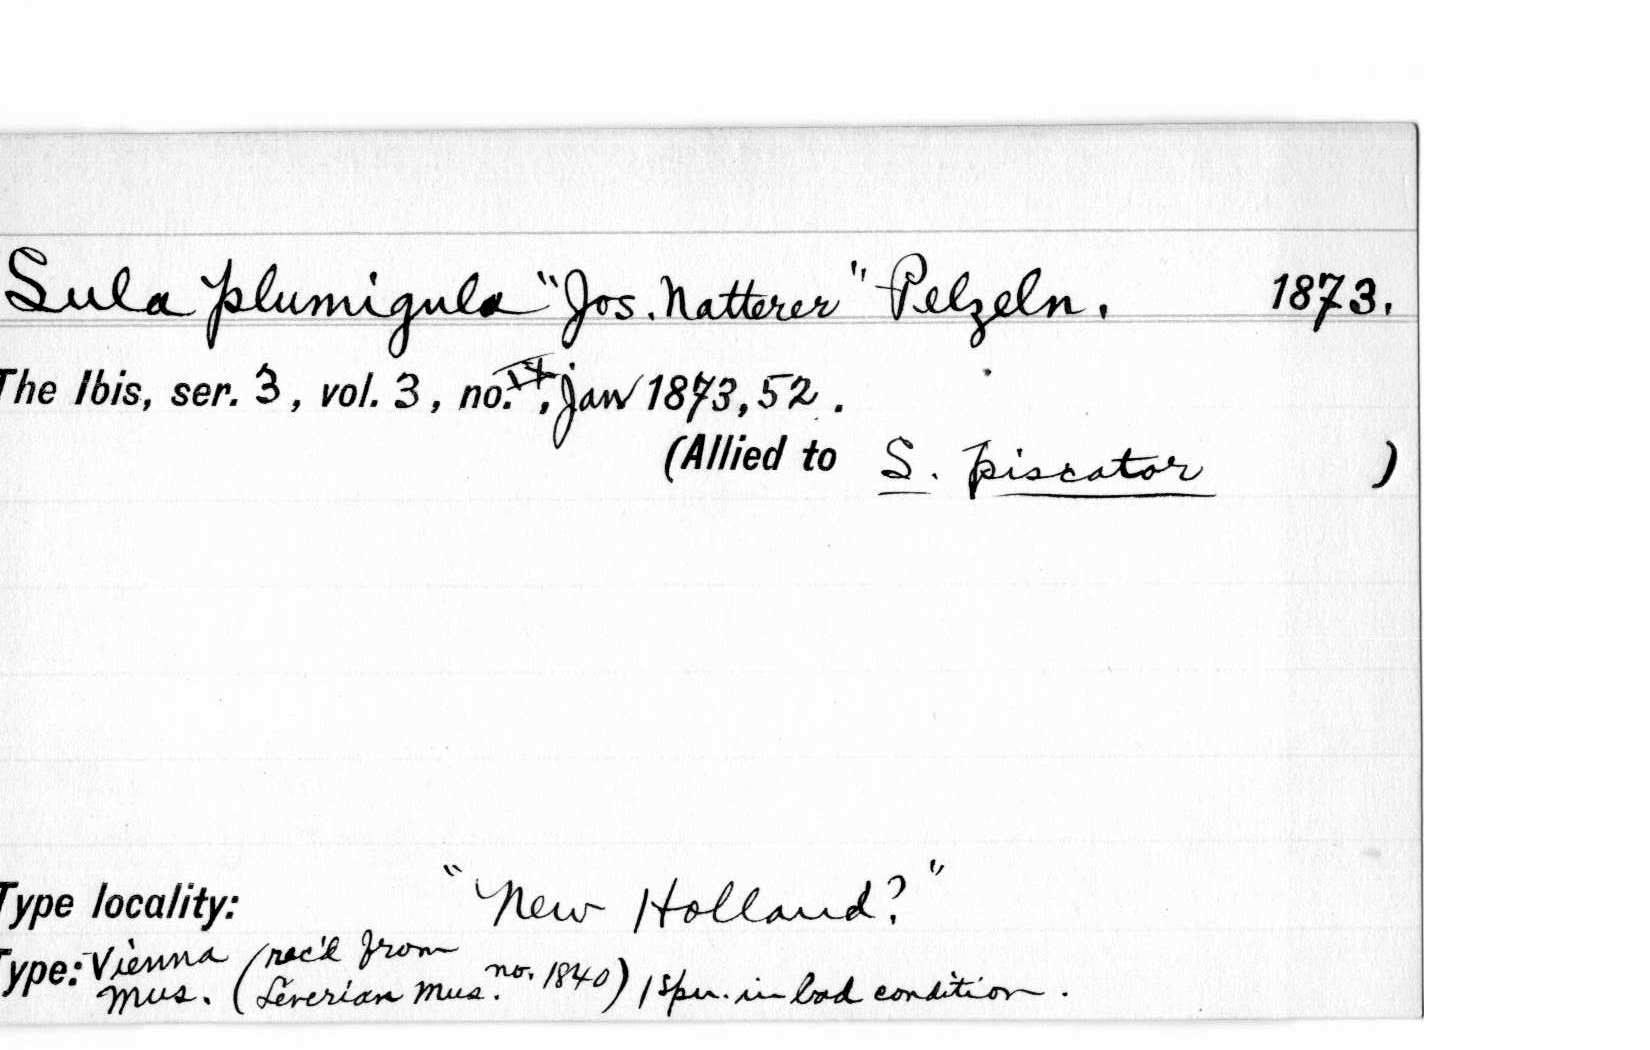 Sula plumigula "Jos. Natterer" Pelzeln. 1873.
The Ibis, ser. 3, vol. 3, no. , Jan 1873, 52.
(Allied to S. piscator )
Type locality: "New Holland?"
Type: Vienna Mus. (rec'd from Leverian Mus. no. 1840) 1 spn. in bad condition.